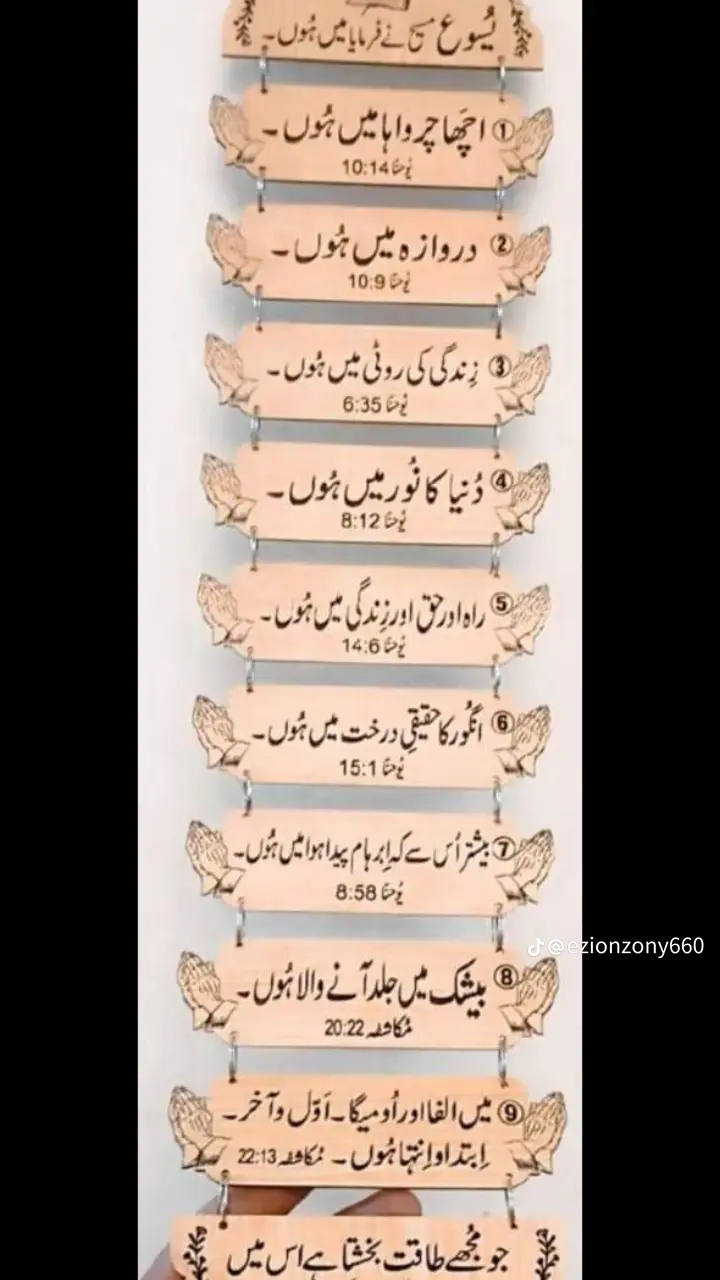 یُسوع مسیح نے فرمایا میں ہُوں۔
① اچھا چرواہا میں ہُوں۔
یُوحنّا 10:14
② دروازہ میں ہُوں۔
یُوحنّا 10:9
③ زِندگی کی روٹی میں ہُوں۔
یُوحنّا 6:35
④ دُنیا کا نُور میں ہُوں۔
یُوحنّا 8:12
⑤ راہ اور حق اور زِندگی میں ہُوں۔
یُوحنّا 14:6
⑥ انگُور کا حقیقی درخت میں ہُوں۔
یُوحنّا 15:1
⑦ بیشتر اُس سے کہ اِبرہام پیدا ہوا میں ہُوں۔
یُوحنّا 8:58
@ezionzony660
⑧ بیشک میں جلد آنے والا ہُوں۔
مُکاشفہ 20:22
⑨ میں الفا اور اُومیگا۔ اَوّل و آخر۔
اِبتدا و اِنتہا ہُوں۔ مُکاشفہ 22:13
جو مُجھے طاقت بخشتا ہے اس میں